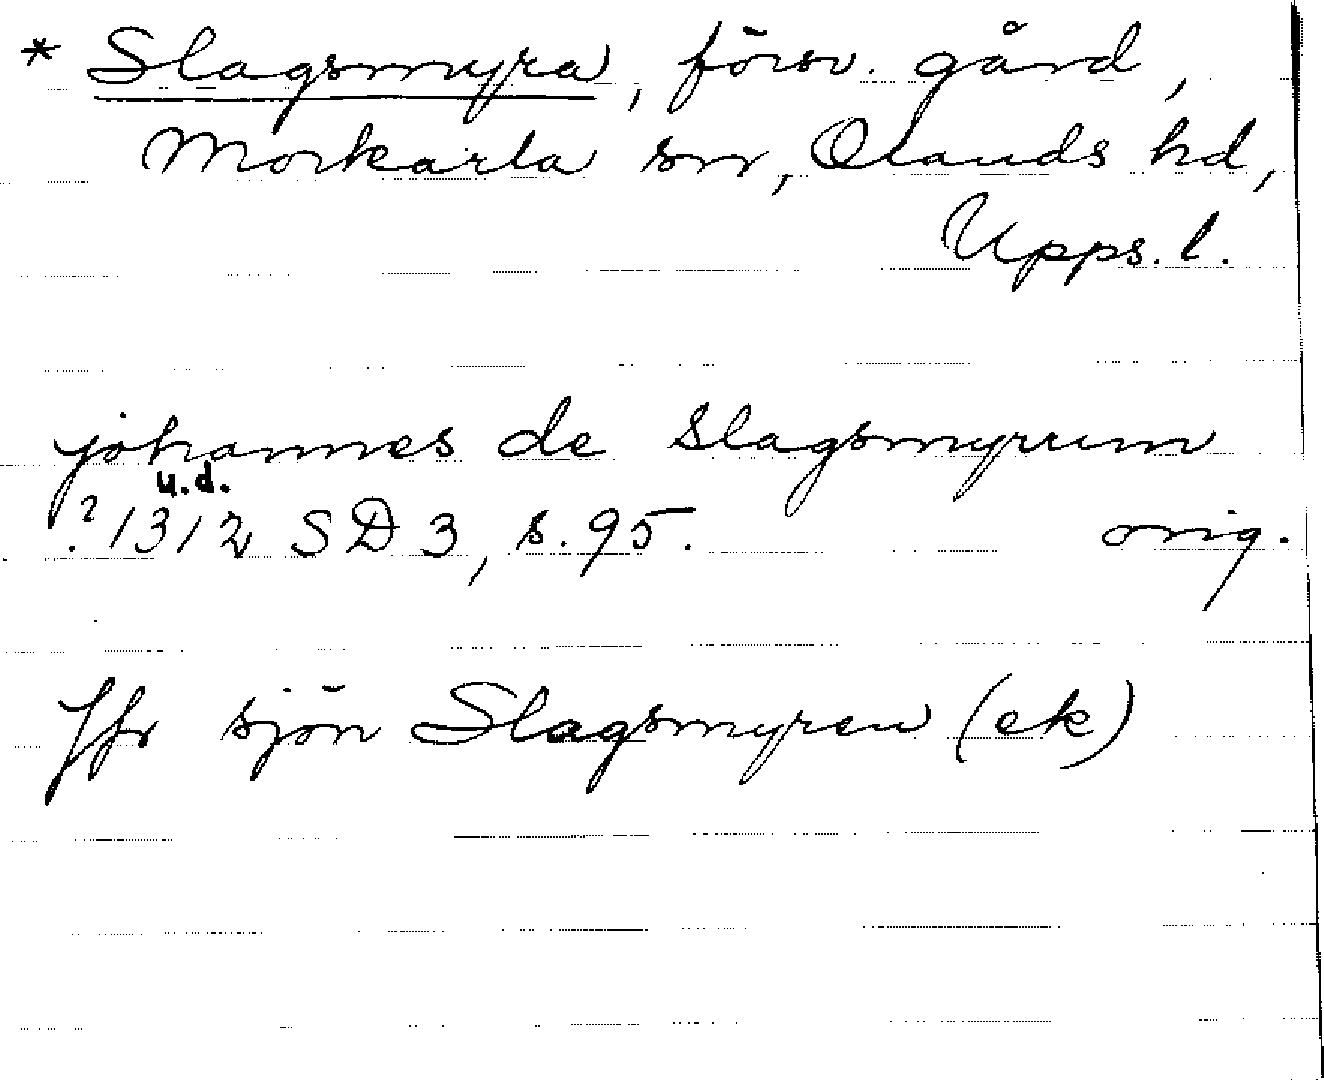 * Slagsmyra, försv. gård,
Morkarla sn, Olands hd,
Upps. l.
johannes de Slagsmyrum
u.d.
? 1312 SD 3, s. 95. orig.
Jfr sjön Slagsmyren (ek)